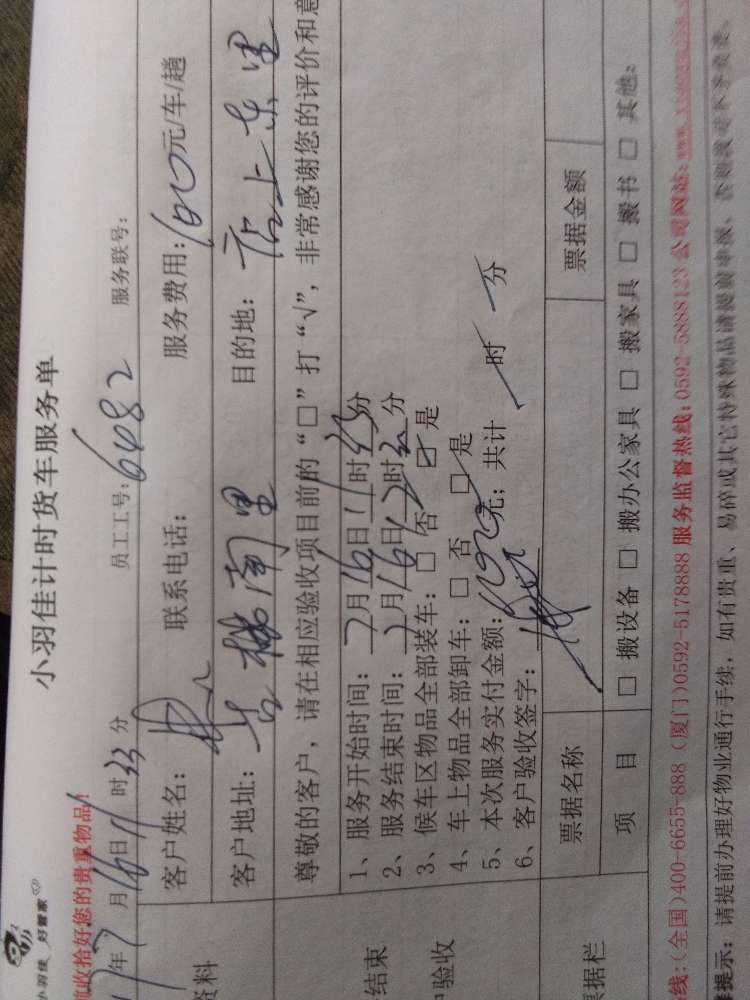 小羽佳 好管家
小羽佳计时货车服务单
收拾好您的贵重物品!
17年7月16日11时33分 员工工号: 6482 服务联号:
客户姓名: 联系电话: 服务费用: 元/车/趟
客户地址: 古楼南里 目的地: 店上东里
尊敬的客户,请在相应验收项目前的“□”打“√”,非常感谢您的评价和意
1、服务开始时间: 7月16日11时33分
2、服务结束时间: 7月16日12时 分
3、候车区物品全部装车: □ 否 ☑ 是
4、车上物品全部卸车: □ 否 □ 是
5、本次服务实付金额: 元; 共计 时 分
6、客户验收签字:
资料
结束
验收
据栏
票据名称 票据金额
项 目 □ 搬设备 □ 搬办公家具 □ 搬家具 □ 搬书 □ 其他:
线:(全国)400-6655-888 (厦门)0592-5178888 服务监督热线:0592-5888123 公司网站:
提示: 请提前办理好物业通行手续,如有贵重、易碎或其它特殊物品请提前申报,否则